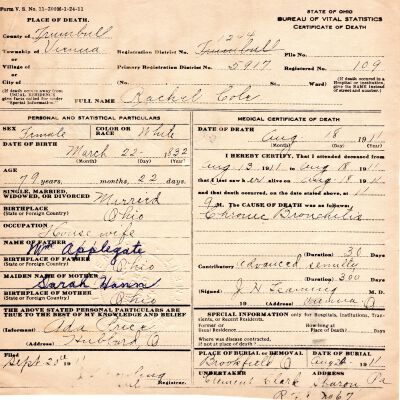 Form V. S. No. 11-300M-1-24-11
PLACE OF DEATH.
STATE OF OHIO
BUREAU OF VITAL STATISTICS
CERTIFICATE OF DEATH
County of Trumbull
Township of Vienna
Registration District No.
File No.
or
Village of
Primary Registration District No. 5917
Registered No. 109
or
City of
(No.
St.;
Ward)
(If death occurred in a Hospital or institution, give the NAME instead of street and number.)
(If death occurs away from USUAL RESIDENCE give facts called for under "Special Information.")
FULL NAME Rachel Cole
PERSONAL AND STATISTICAL PARTICULARS
SEX Female
COLOR OR RACE White
DATE OF BIRTH
March 22 1832
(Month) (Day) (Year)
AGE
79 years, months, 22 days.
SINGLE, MARRIED, WIDOWED, OR DIVORCED Married
BIRTHPLACE
(State or Foreign Country) Ohio
OCCUPATION
House wife
NAME OF FATHER Wm Applegate
BIRTHPLACE OF FATHER
(State or Foreign Country) Ohio
MAIDEN NAME OF MOTHER Sarah Hann
BIRTHPLACE OF MOTHER
(State or Foreign Country) Ohio
THE ABOVE STATED PERSONAL PARTICULARS ARE TRUE TO THE BEST OF MY KNOWLEDGE AND BELIEF
(Informant) Ada
(Address) Hubbard O
Filed
Sept 25th 19
Registrar.
MEDICAL CERTIFICATE OF DEATH
DATE OF DEATH
Aug 18 1911
(Month) (Day) (Year)
I HEREBY CERTIFY, That I attended deceased from
Aug 13 1911 to Aug 18 1911
that I last saw her alive on Aug 1911
and that death occurred, on the date stated above, at
9 M. The CAUSE OF DEATH was as follows:
Chronic Bronchitis
(Duration) Days
Contributory advanced senility
(Duration) 300 Days
(Signed) M. D.
19 (Address) Vienna O
SPECIAL INFORMATION only for Hospitals, Institutions, Transients, or Recent Residents.
Former or Usual Residence.
How long at Place of Death? Days
Where was disease contracted, if not at place of death?
PLACE OF BURIAL or REMOVAL
Brookfield O
DATE OF BURIAL
Aug 1911
UNDERTAKER
Clement Clark
ADDRESS
Sharon Pa